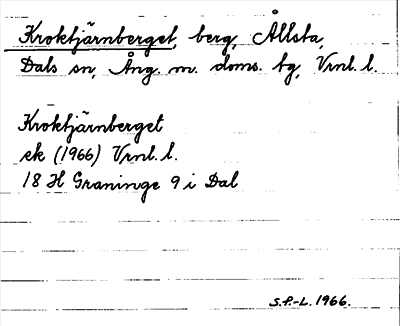 Kroktjärnberget, berg, Ållsta,
Dals sn, Ång. m. doms. tg, Vrnl. l.
Kroktjärnberget
ek (1966) Vrnl. l.
18 H Graninge 9 i Dal
S.P.-L. 1966.